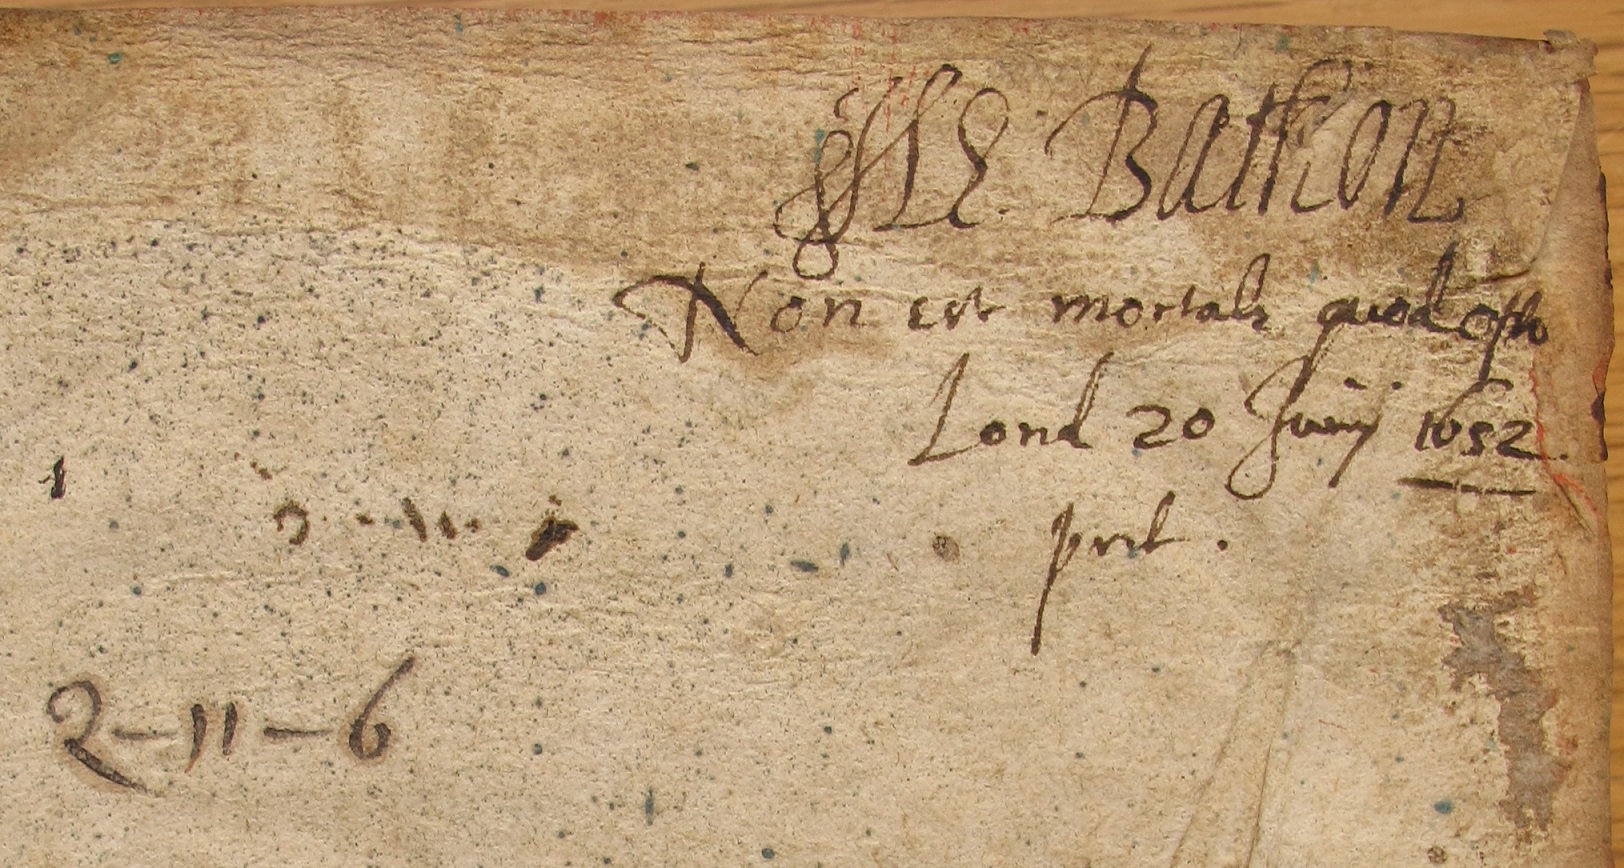 Bathon
Non est mortale quod opto
Lond 20 Junij 1652.
pret.
2-11-6